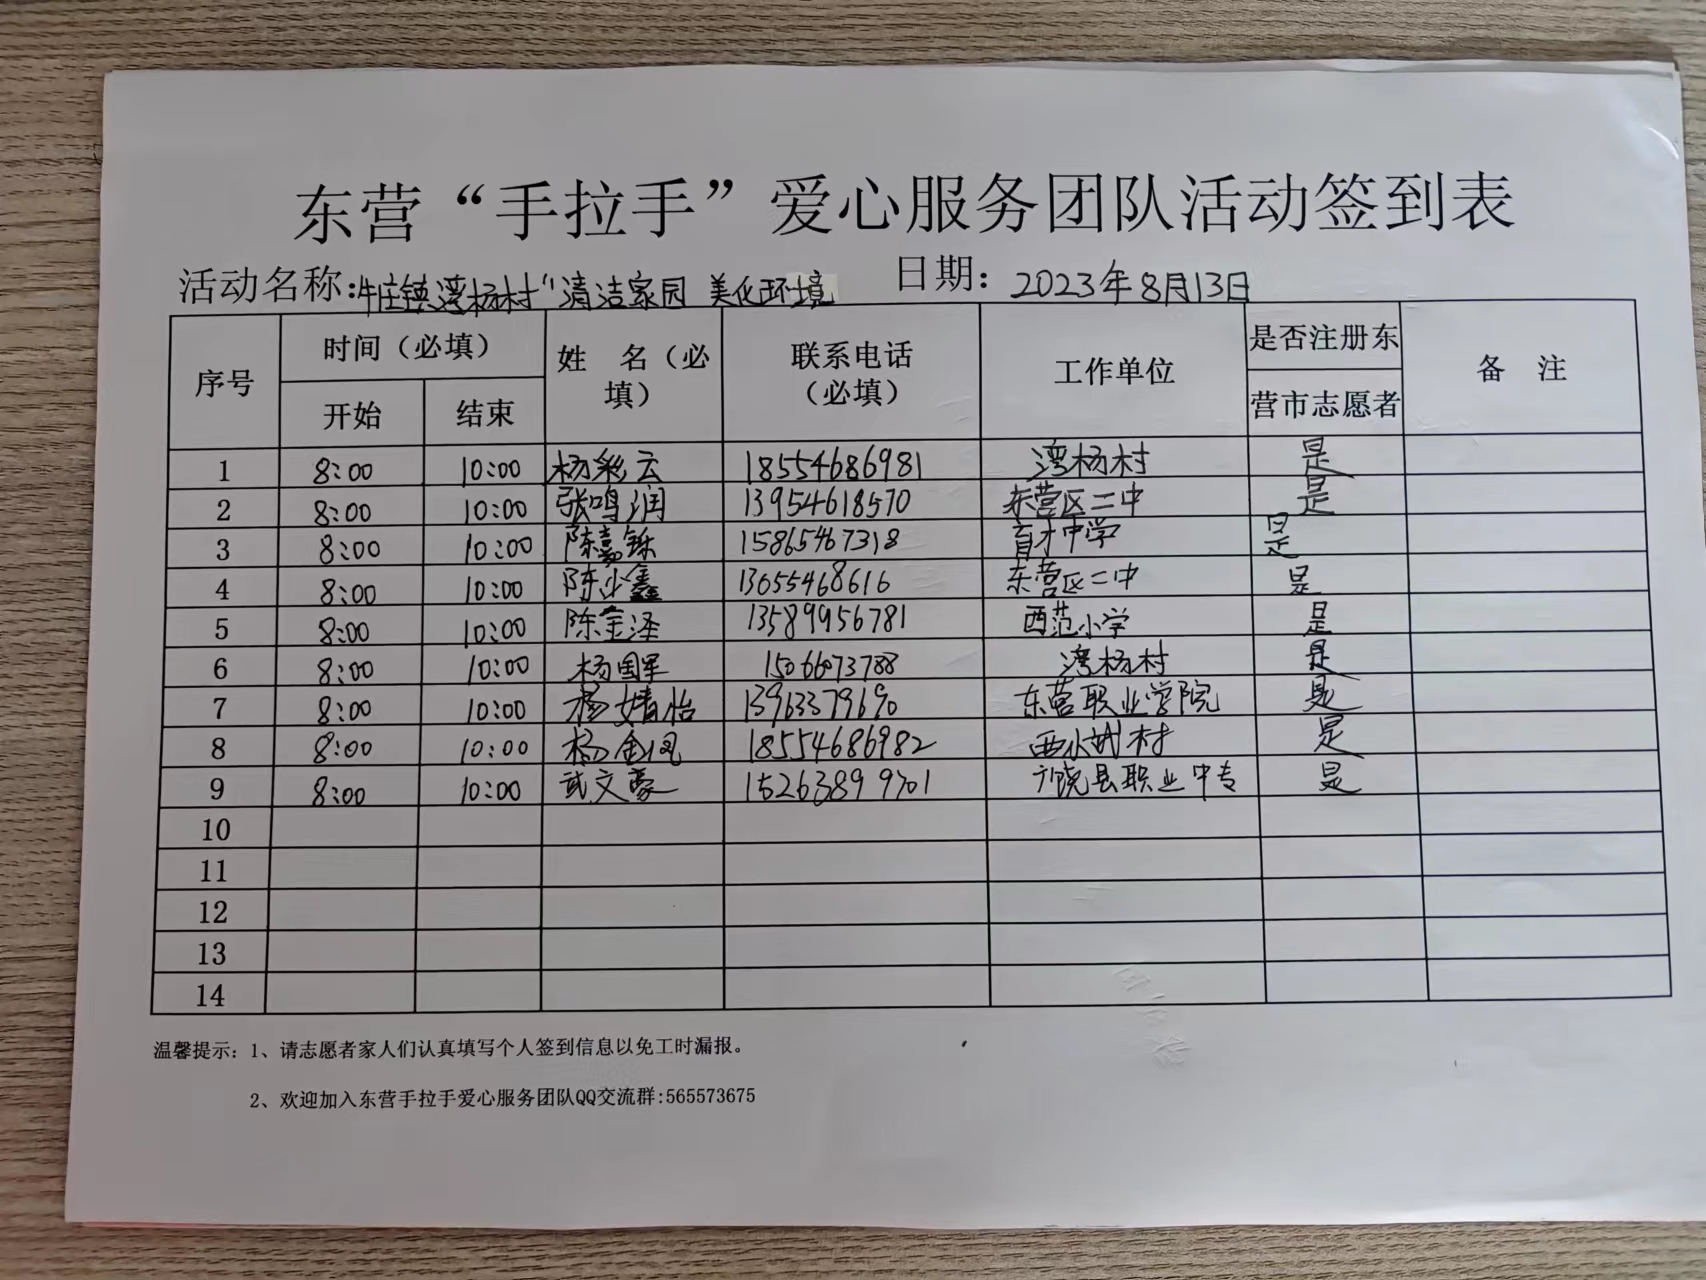 东营“手拉手”爱心服务团队活动签到表
活动名称:牛庄镇湾杨村"清洁家园 美化环境 日期: 2023年8月13日
序号 时间（必填） 姓 名（必填） 联系电话（必填） 工作单位 是否注册东营市志愿者 备 注
开始 结束
1 8:00 10:00 杨彩云 18554686981 湾杨村 是
2 8:00 10:00 张鸣润 13954618570 东营区二中 是
3 8:00 10:00 陈嘉铄 15865467318 育才中学 是
4 8:00 10:00 陈少鑫 13055468616 东营区二中 是
5 8:00 10:00 陈金泽 13589956781 西范小学 是
6 8:00 10:00 杨国军 15066073788 湾杨村 是
7 8:00 10:00 杨婧怡 13963379690 东营职业学院 是
8 8:00 10:00 杨金凤 18554686982 西水村 是
9 8:00 10:00 武文豪 15263899701 广饶县职业中专 是
10
11
12
13
14
温馨提示：1、请志愿者家人们认真填写个人签到信息以免工时漏报。
2、欢迎加入东营手拉手爱心服务团队QQ交流群:565573675